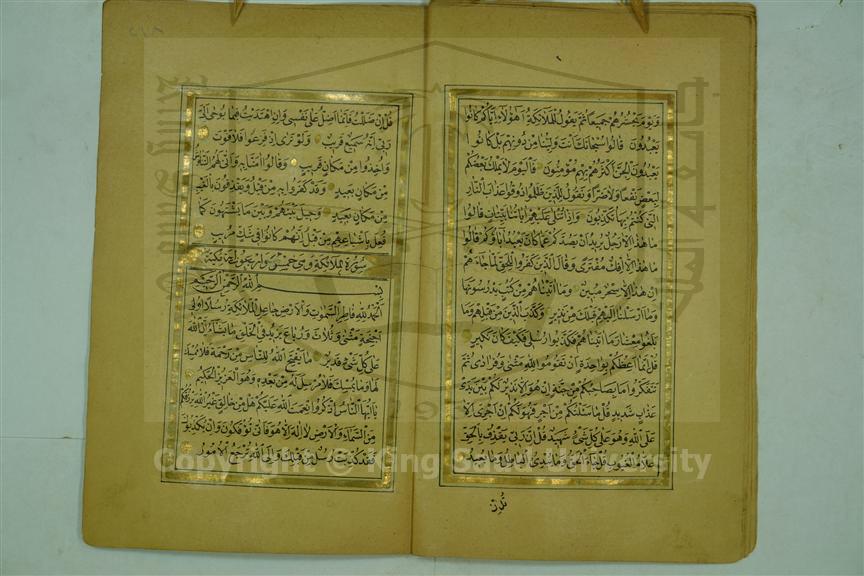 ويوم يحشرهم جميعا ثم يقول للملائكة اهؤلاء اياكم كانوا
يعبدون قالوا سبحانك انت ولينا من دونهم بل كانوا
يعبدون الجن اكثرهم بهم مؤمنون فاليوم لا يملك بعضكم
لبعض نفعا ولا ضرا ونقول للذين ظلموا ذوقوا عذاب النار
التي كنتم بها تكذبون واذا تتلى عليهم اياتنا بينات قالوا
ما هذا الا رجل يريد ان يصدكم عما كان يعبد اباؤكم وقالوا
ما هذا الا افك مفترى وقال الذين كفروا للحق لما جاءهم
ان هذا الا سحر مبين وما اتيناهم من كتب يدرسونها
وما ارسلنا اليهم قبلك من نذير وكذب الذين من قبلهم وما
بلغوا معشار ما اتيناهم فكذبوا رسلي فكيف كان نكير
قل انما اعظكم بواحدة ان تقوموا لله مثنى وفرادى ثم
تتفكروا ما بصاحبكم من جنة ان هو الا نذير لكم بين يدي
عذاب شديد قل ما سئلتكم من اجر فهو لكم ان اجري الا
على الله وهو على كل شئ شهيد قل ان ربي يقذف بالحق
علام الغيوب قل جاء الحق وما يبدئ الباطل وما يعيد
قل ان
قل ان ضللت فانما اضل على نفسي وان اهتديت فبما يوحى الي
ربي انه سميع قريب ولو ترى اذ فزعوا فلا فوت
واخذوا من مكان قريب وقالوا امنا به وانى لهم التناوش
من مكان بعيد وقد كفروا به من قبل ويقذفون بالغيب
من مكان بعيد وحيل بينهم وبين ما يشتهون كما
فعل باشياعهم من قبل انهم كانوا في شك مريب
سورة الملائكة وهي خمس واربعون اية مكية
بسم الله الرحمن الرحيم
الحمد لله فاطر السموات والارض جاعل الملائكة رسلا اولي
اجنحة مثنى وثلاث ورباع يزيد في الخلق ما يشاء ان الله
على كل شئ قدير ما يفتح الله للناس من رحمة فلا ممسك
لها وما يمسك فلا مرسل له من بعده وهو العزيز الحكيم
يا ايها الناس اذكروا نعمت الله عليكم هل من خالق غير الله يرزقكم
من السماء والارض لا اله الا هو فانى تؤفكون وان يكذبوك
فقد كذبت رسل من قبلك والى الله ترجع الامور
Copyright © King Saud University